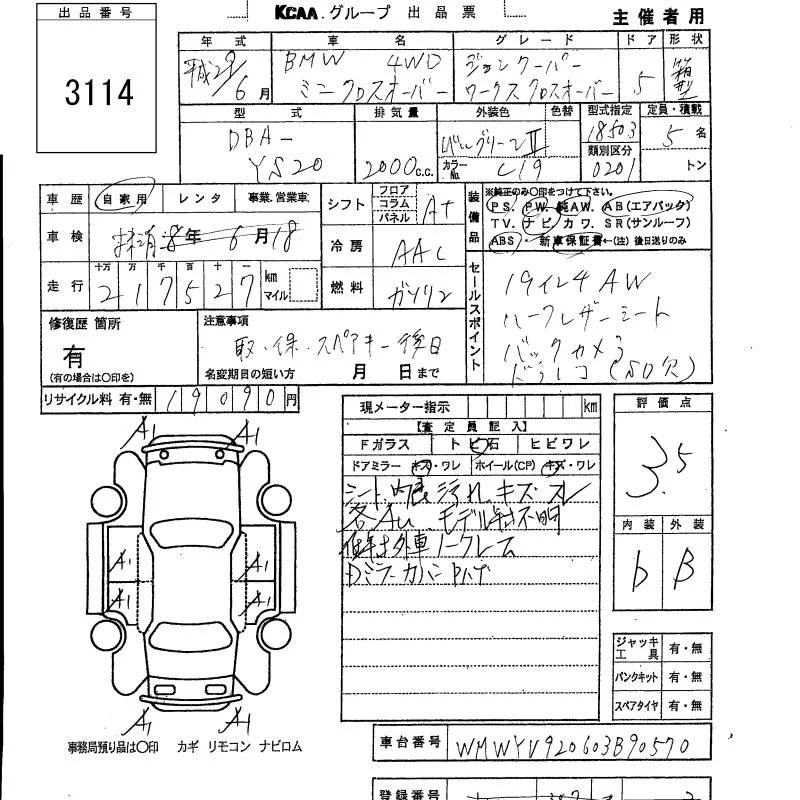 出品番号
3114
KCAA.グループ 出品票
主催者用
年式 車名 グレード ドア 形状
平成29/6月
BMW 4WD
ミニ クロスオーバー
ジョンクーパー
ワークス クロスオーバー
5
箱型
型式 排気量 外装色 色替 型式指定 定員・積載
DBA-
YS20
2000c.c.
グリーンⅡ
カラーNo. C19
18503
類別区分
0201
5名
トン
車歴 自家用 レンタ 事業.営業車
車検 抹消 8年6月18
走行 十万 万 千 百 十 一
217527 km マイル
シフト フロア コラム パネル AT
冷房 AAC
燃料 ガソリン
装備品
※純正のみ〇印をつけて下さい。
PS. PW. 純AW. AB(エアバック)
TV. ナビ カワ. SR(サンルーフ)
ABS・新車保証書←(注)後日送りのみ
セールスポイント
19インチAW
ハーフレザーシート
バックカメラ
ドラレコ(SD欠)
修復歴 箇所
有
(有の場合は〇印を)
注意事項
取・保・スペアキー後日
名変期目の短い方 月 日まで
リサイクル料 有・無 19090円
現メーター指示 km
【査定員記入】
Fガラス トビ石 ヒビワレ
ドアミラー キズ・ワレ ホイール(CP) キズ・ワレ
シート、内張 汚れ キズ スレ
各AU、モデル 不明
外車ノークレーム
Dミラーカバー Pハゲ
評価点
3.5
内装 外装
b B
ジャッキ工具 有・無
パンクキット 有・無
スペアタイヤ 有・無
A1 A1
A1 A1
A1 A1
A1 A1
事務局預り品は〇印 カギ リモコン ナビロム
車台番号 WMWYV920603B90570
登録番号